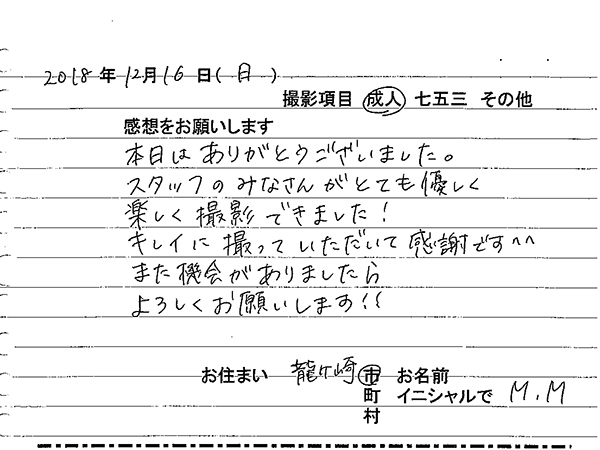 2018年12月16日(日)
撮影項目 成人 七五三 その他
感想をお願いします
本日はありがとうございました。
スタッフのみなさんがとても優しく
楽しく撮影できました!
キレイに撮っていただいて感謝です^^
また機会がありましたら
よろしくお願いします!!
お住まい 龍ヶ崎 市 お名前
町 イニシャルで M.M
村